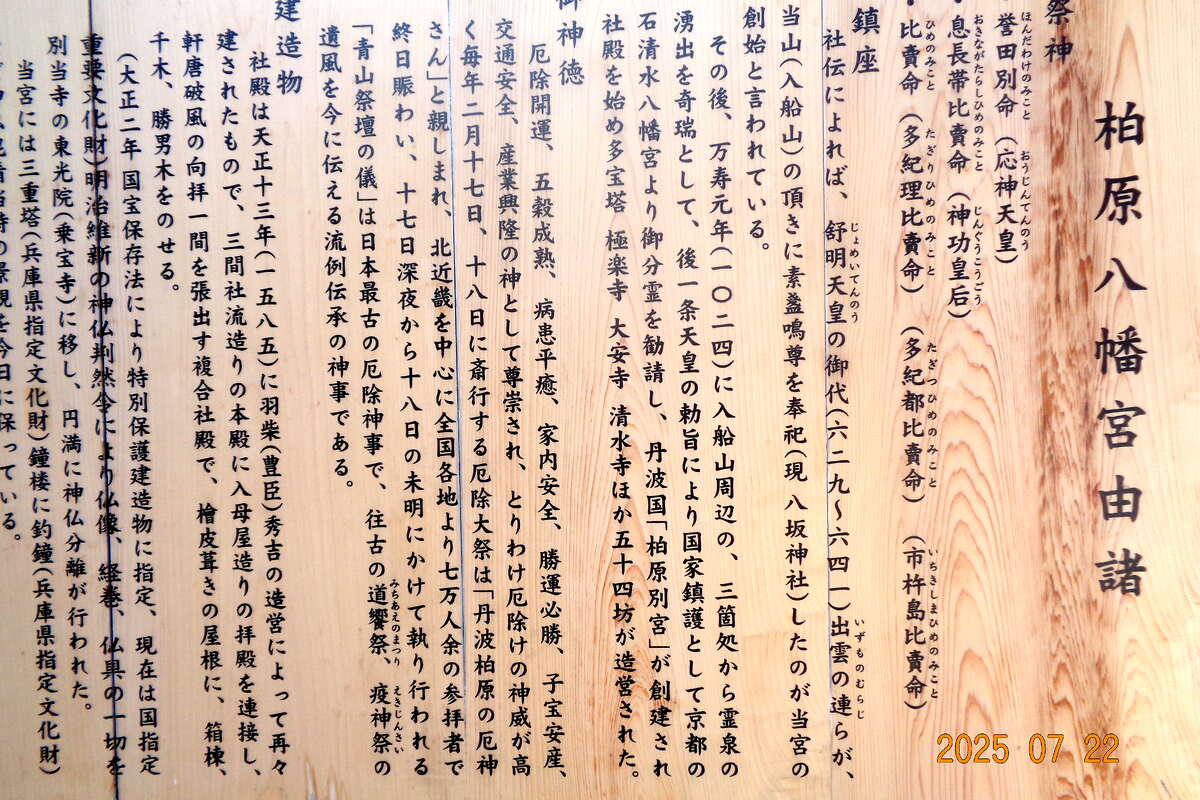 柏原八幡宮由諸
祭神
・誉田別命（応神天皇）
・息長帯比賣命（神功皇后）
・比賣命（多紀理比賣命）（多紀都比賣命）（市杵島比賣命）
鎮座
社伝によれば、舒明天皇の御代（六二九〜六四一）出雲の連らが、
当山（入船山）の頂きに素盞鳴尊を奉祀（現 八坂神社）したのが当宮の
創始と言われている。
その後、万寿元年（一〇二四）に入船山周辺の、三箇処から霊泉の
湧出を奇瑞として、後一条天皇の勅旨により国家鎮護として京都の
石清水八幡宮より御分霊を勧請し、丹波国「柏原別宮」が創建され
社殿を始め多宝塔 極楽寺 大安寺 清水寺ほか五十四坊が造営された。
御神徳
厄除開運、五穀成熟、病患平癒、家内安全、勝運必勝、子宝安産、
交通安全、産業興隆の神として尊崇され、とりわけ厄除けの神威が高
く毎年二月十七日、十八日に斎行する厄除大祭は「丹波柏原の厄神
さん」と親しまれ、北近畿を中心に全国各地より七万人余の参拝者で
終日賑わい、十七日深夜から十八日の未明にかけて執り行われる
「青山祭壇の儀」は日本最古の厄除神事で、往古の道饗祭、疫神祭の
遺風を今に伝える流例伝承の神事である。
建造物
社殿は天正十三年（一五八五）に羽柴（豊臣）秀吉の造営によって再々
建されたもので、三間社流造りの本殿に入母屋造りの拝殿を連接し、
軒唐破風の向拝一間を張出す複合社殿で、檜皮葺きの屋根に、箱棟、
千木、勝男木をのせる。
（大正二年 国宝保存法により特別保護建造物に指定、現在は国指定
重要文化財）明治維新の神仏判然令により仏像、経巻、仏具の一切を
別当寺の東光院（乗宝寺）に移し、円満に神仏分離が行われた。
当宮には三重塔（兵庫県指定文化財）鐘楼に釣鐘（兵庫県指定文化財）
当時の景観を今日に保っている。
ほんだわけのみこと
おうじんてんのう
おきながたらしひめのみこと
じんぐうこうごう
ひめのみこと
たぎりひめのみこと
たぎつひめのみこと
いちきしまひめのみこと
じょめいてんのう
いずものむらじ
みちあえのまつり
えきじんさい
2025 07 22